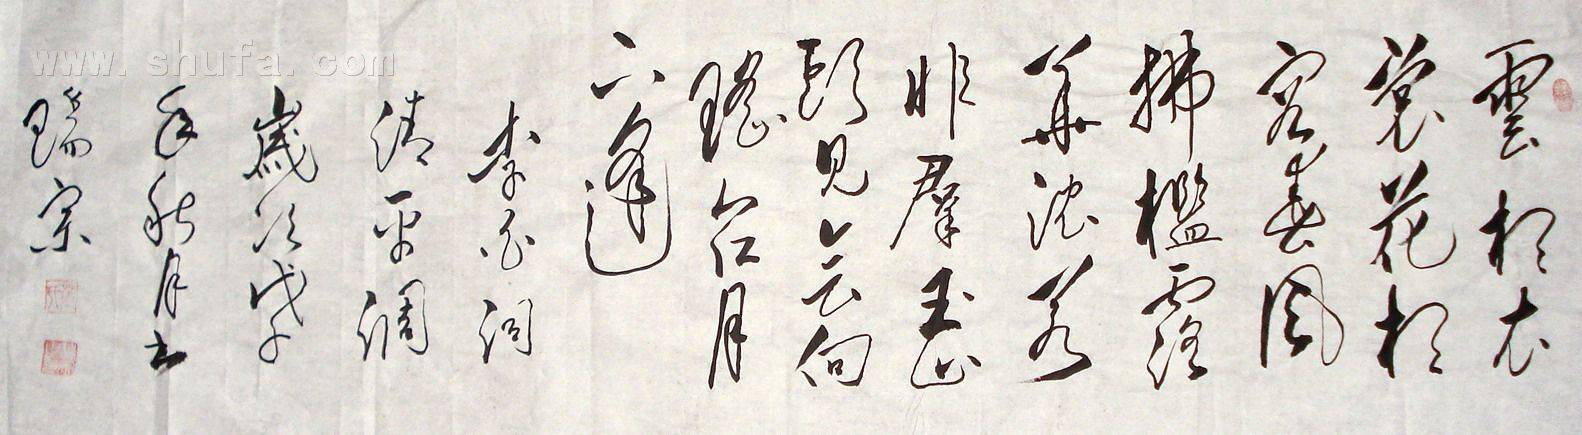 雲想衣
裳花想
容春風
拂檻露
華濃若
非群玉山
頭見会向
瑤台月
下逢
李白詞
清平調
歲次戊子
年秋月书
瑞宗
www.shufa.com